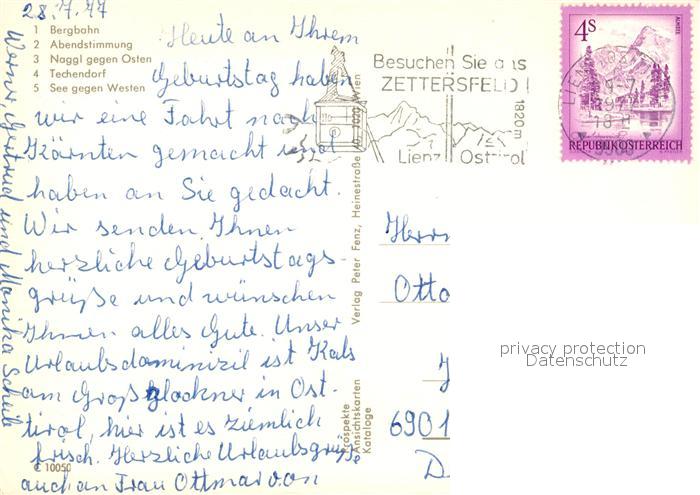 28.7.77
1 Bergbahn
2 Abendstimmung
3 Naggl gegen Osten
4 Techendorf
5 See gegen Westen
Heute an Ihrem
Geburtstag haben
wir eine Fahrt nach
Kärnten gemacht und
haben an Sie gedacht.
Wir senden Ihnen
herzliche Geburtstags-
grüße und wünschen
Ihnen alles Gute. Unser
Urlaubsdominizil ist Kals
am Großglockner in Ost-
tirol, hier ist es ziemlich
frisch. Herzliche Urlaubsgrüße
auch an Frau Ottmar von
Werner, Gertrud und Monika Scheib
C 10050
Verlag Peter Fenz, Heinestraße 40, 1020 Wien
Prospekte
Ansichtskarten
Kataloge
Besuchen Sie das
ZETTERSFELD!
1820m
Lienz Osttirol
4S
ALMSEE
REPUBLIK ÖSTERREICH
LIENZ
1977
18
9900
Herrn
Otto
6901
D
privacy protection
Datenschutz